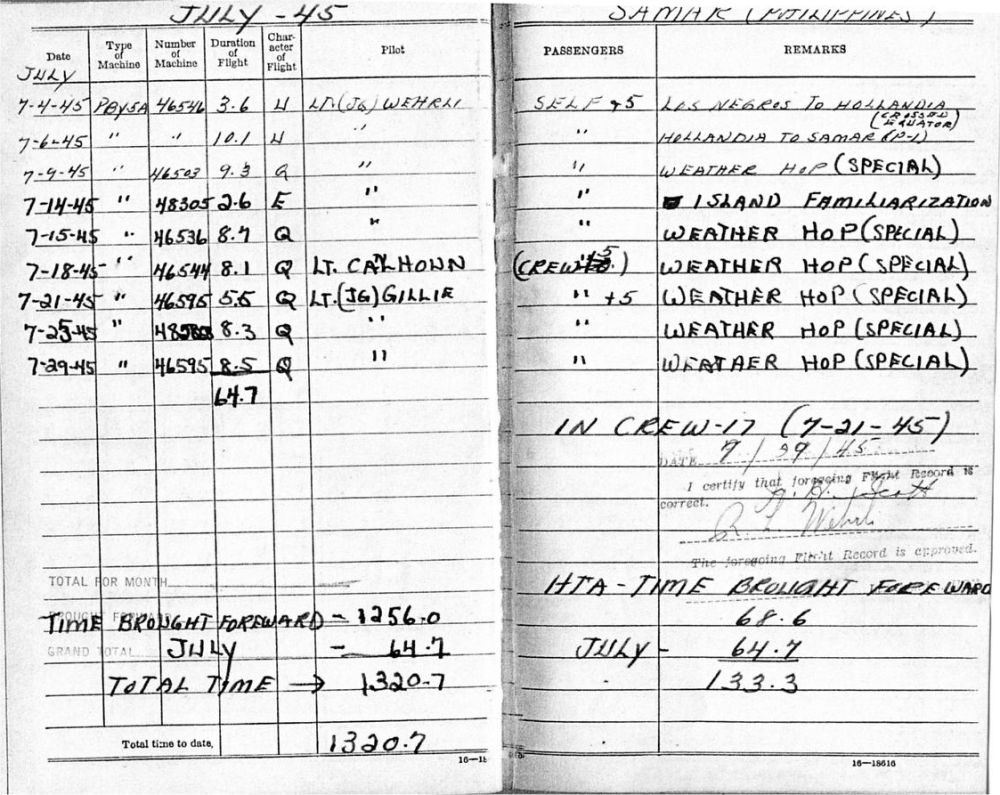 JULY - 45
Date Type of Machine Number of Machine Duration of Flight Character of Flight Pilot
JULY
7-4-45 PBY5A 46546 3.6 U LT.(JG) WEHRLI
7-6-45 " " 10.1 U "
7-9-45 " 46503 9.3 Q "
7-14-45 " 48305 2.6 E "
7-15-45 " 46536 8.7 Q "
7-18-45 " 46544 8.1 Q LT. CALHOUN
7-21-45 " 46595 5.5 Q LT.(JG) GILLIE
7-25-45 " 8.3 Q "
7-29-45 " 46595 8.5 Q "
64.7
TOTAL FOR MONTH
BROUGHT FORWARD
TIME BROUGHT FOREWARD - 1256.0
GRAND TOTAL JULY - 64.7
TOTAL TIME → 1320.7
Total time to date, 1320.7
16-18
SAMAR (PHILIPPINES)
PASSENGERS REMARKS
SELF +5 LOS NEGROS TO HOLLANDIA
(CROSSED EQUATOR)
" HOLLANDIA TO SAMAR (P-I)
" WEATHER HOP (SPECIAL)
" ISLAND FAMILIARIZATION
" WEATHER HOP (SPECIAL)
(CREW 5.) WEATHER HOP (SPECIAL)
" +5 WEATHER HOP (SPECIAL)
" WEATHER HOP (SPECIAL)
" WEATHER HOP (SPECIAL)
IN CREW-17 (7-21-45)
DATE 7/29/45
I certify that foregoing Flight Record is
correct.
Scott
R L Wehrli
The foregoing Flight Record is approved.
HTA - TIME BROUGHT FOREWARD
68.6
JULY - 64.7
133.3
16-18616